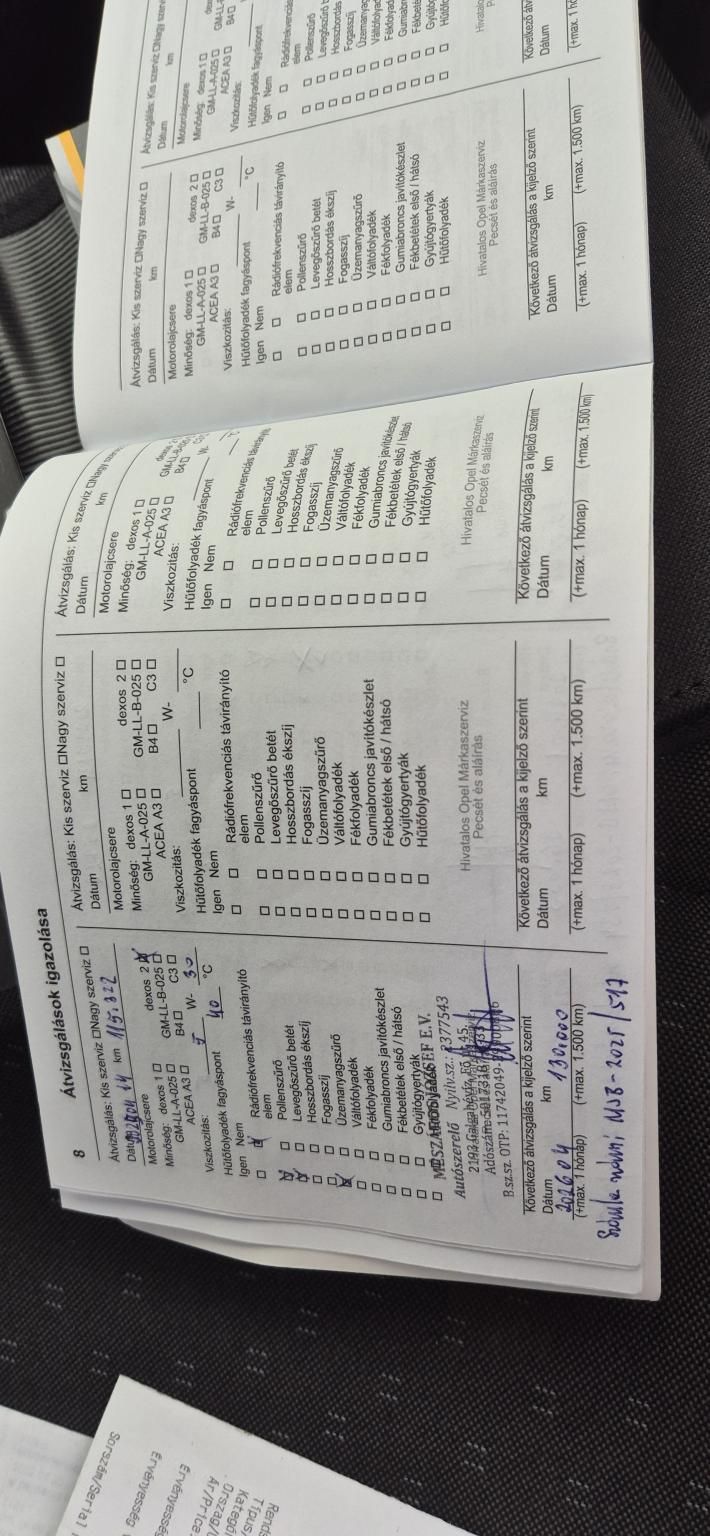 8
Átvizsgálások igazolása
Átvizsgálás: Kis szerviz □Nagy szerviz □
Dátum km 115.322
Motorolajcsere
Minőség: dexos 1 □ dexos 2 ☒
GM-LL-A-025 □ GM-LL-B-025 □
ACEA A3 □ B4 □ C3 □
Viszkozitás: 5 W- 30
Hűtőfolyadék fagyáspont 40 °C
Igen Nem
□ ☒ Rádiófrekvenciás távirányító
elem
☒ □ Pollenszűrő
☒ □ Levegőszűrő betét
□ □ Hosszbordás ékszíj
□ □ Fogasszíj
☒ □ Üzemanyagszűrő
□ □ Váltófolyadék
□ □ Fékfolyadék
□ □ Gumiabroncs javítókészlet
□ □ Fékbetétek első / hátsó
□ □ Gyújtógyertyák
□
MÉSZÁROS JÓZSEF E.V.
Autószerelő Nyilv.sz.:
Adószám:
B.sz.sz. OTP: 11742049-
Következő átvizsgálás a kijelző szerint
Dátum km
202604 130.000
(+max. 1 hónap) (+max. 1.500 km)
2025/517
Átvizsgálás: Kis szerviz □Nagy szerviz □
Dátum km
Motorolajcsere
Minőség: dexos 1 □ dexos 2 □
GM-LL-A-025 □ GM-LL-B-025 □
ACEA A3 □ B4 □ C3 □
Viszkozitás: W-
Hűtőfolyadék fagyáspont °C
Igen Nem
□ □ Rádiófrekvenciás távirányító
elem
□ □ Pollenszűrő
□ □ Levegőszűrő betét
□ □ Hosszbordás ékszíj
□ □ Fogasszíj
□ □ Üzemanyagszűrő
□ □ Váltófolyadék
□ □ Fékfolyadék
□ □ Gumiabroncs javítókészlet
□ □ Fékbetétek első / hátsó
□ □ Gyújtógyertyák
□ □ Hűtőfolyadék
Hivatalos Opel Márkaszerviz
Pecsét és aláírás
Következő átvizsgálás a kijelző szerint
Dátum km
(+max. 1 hónap) (+max. 1.500 km)
Átvizsgálás: Kis szerviz □Nagy
Dátum km
Motorolajcsere
Minőség: dexos 1 □ dexos
GM-LL-A-025 □ GM-LL-B-025
ACEA A3 □ B4 □
Viszkozitás: W-
Hűtőfolyadék fagyáspont
Igen Nem
□ □ Rádiófrekvenciás távirányító
elem
□ □ Pollenszűrő
□ □ Levegőszűrő betét
□ □ Hosszbordás ékszíj
□ □ Fogasszíj
□ □ Üzemanyagszűrő
□ □ Váltófolyadék
□ □ Fékfolyadék
□ □ Gumiabroncs javítókészlet
□ □ Fékbetétek első / hátsó
□ □ Gyújtógyertyák
□ □ Hűtőfolyadék
Hivatalos Opel Márkaszerviz
Pecsét és aláírás
Következő átvizsgálás a kijelző szerint
Dátum km
(+max. 1 hónap) (+max. 1.500 km)
Átvizsgálás: Kis szerviz □Nagy szerviz □
Dátum km
Motorolajcsere
Minőség: dexos 1 □ dexos 2 □
GM-LL-A-025 □ GM-LL-B-025 □
ACEA A3 □ B4 □ C3 □
Viszkozitás: W-
Hűtőfolyadék fagyáspont °C
Igen Nem
□ □ Rádiófrekvenciás távirányító
elem
□ □ Pollenszűrő
□ □ Levegőszűrő betét
□ □ Hosszbordás ékszíj
□ □ Fogasszíj
□ □ Üzemanyagszűrő
□ □ Váltófolyadék
□ □ Fékfolyadék
□ □ Gumiabroncs javítókészlet
□ □ Fékbetétek első / hátsó
□ □ Gyújtógyertyák
□ □ Hűtőfolyadék
Hivatalos Opel Márkaszerviz
Pecsét és aláírás
Következő átvizsgálás a kijelző szerint
Dátum km
(+max. 1 hónap) (+max. 1.500 km)
Átvizsgálás: Kis szerviz □Nagy
Dátum km
Motorolajcsere
Minőség: dexos 1 □
GM-LL-A-025 □
ACEA A3 □ B4 □
Viszkozitás:
Hűtőfolyadék fagyáspont
Igen Nem
□ □
elem
□ □ Pollenszűrő
□ □
□ □
□ □ Fogasszíj
□ □
□ □
□ □
□ □
□ □
□ □
□ □
Következő
Dátum
(+max.
Sorszám/Serial
Érvényesség
Ár/Price